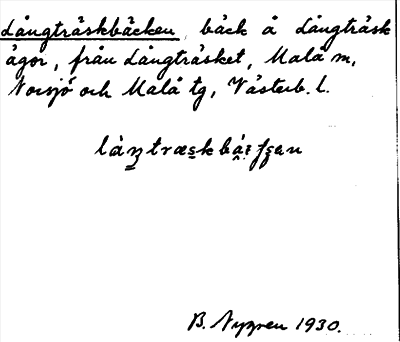 Långträskbäcken, bäck å Långträsk
ägor, från Långträsket, Malå m,
Norsjö och Malå tg, Västerb. l.
B. Nygren 1930.